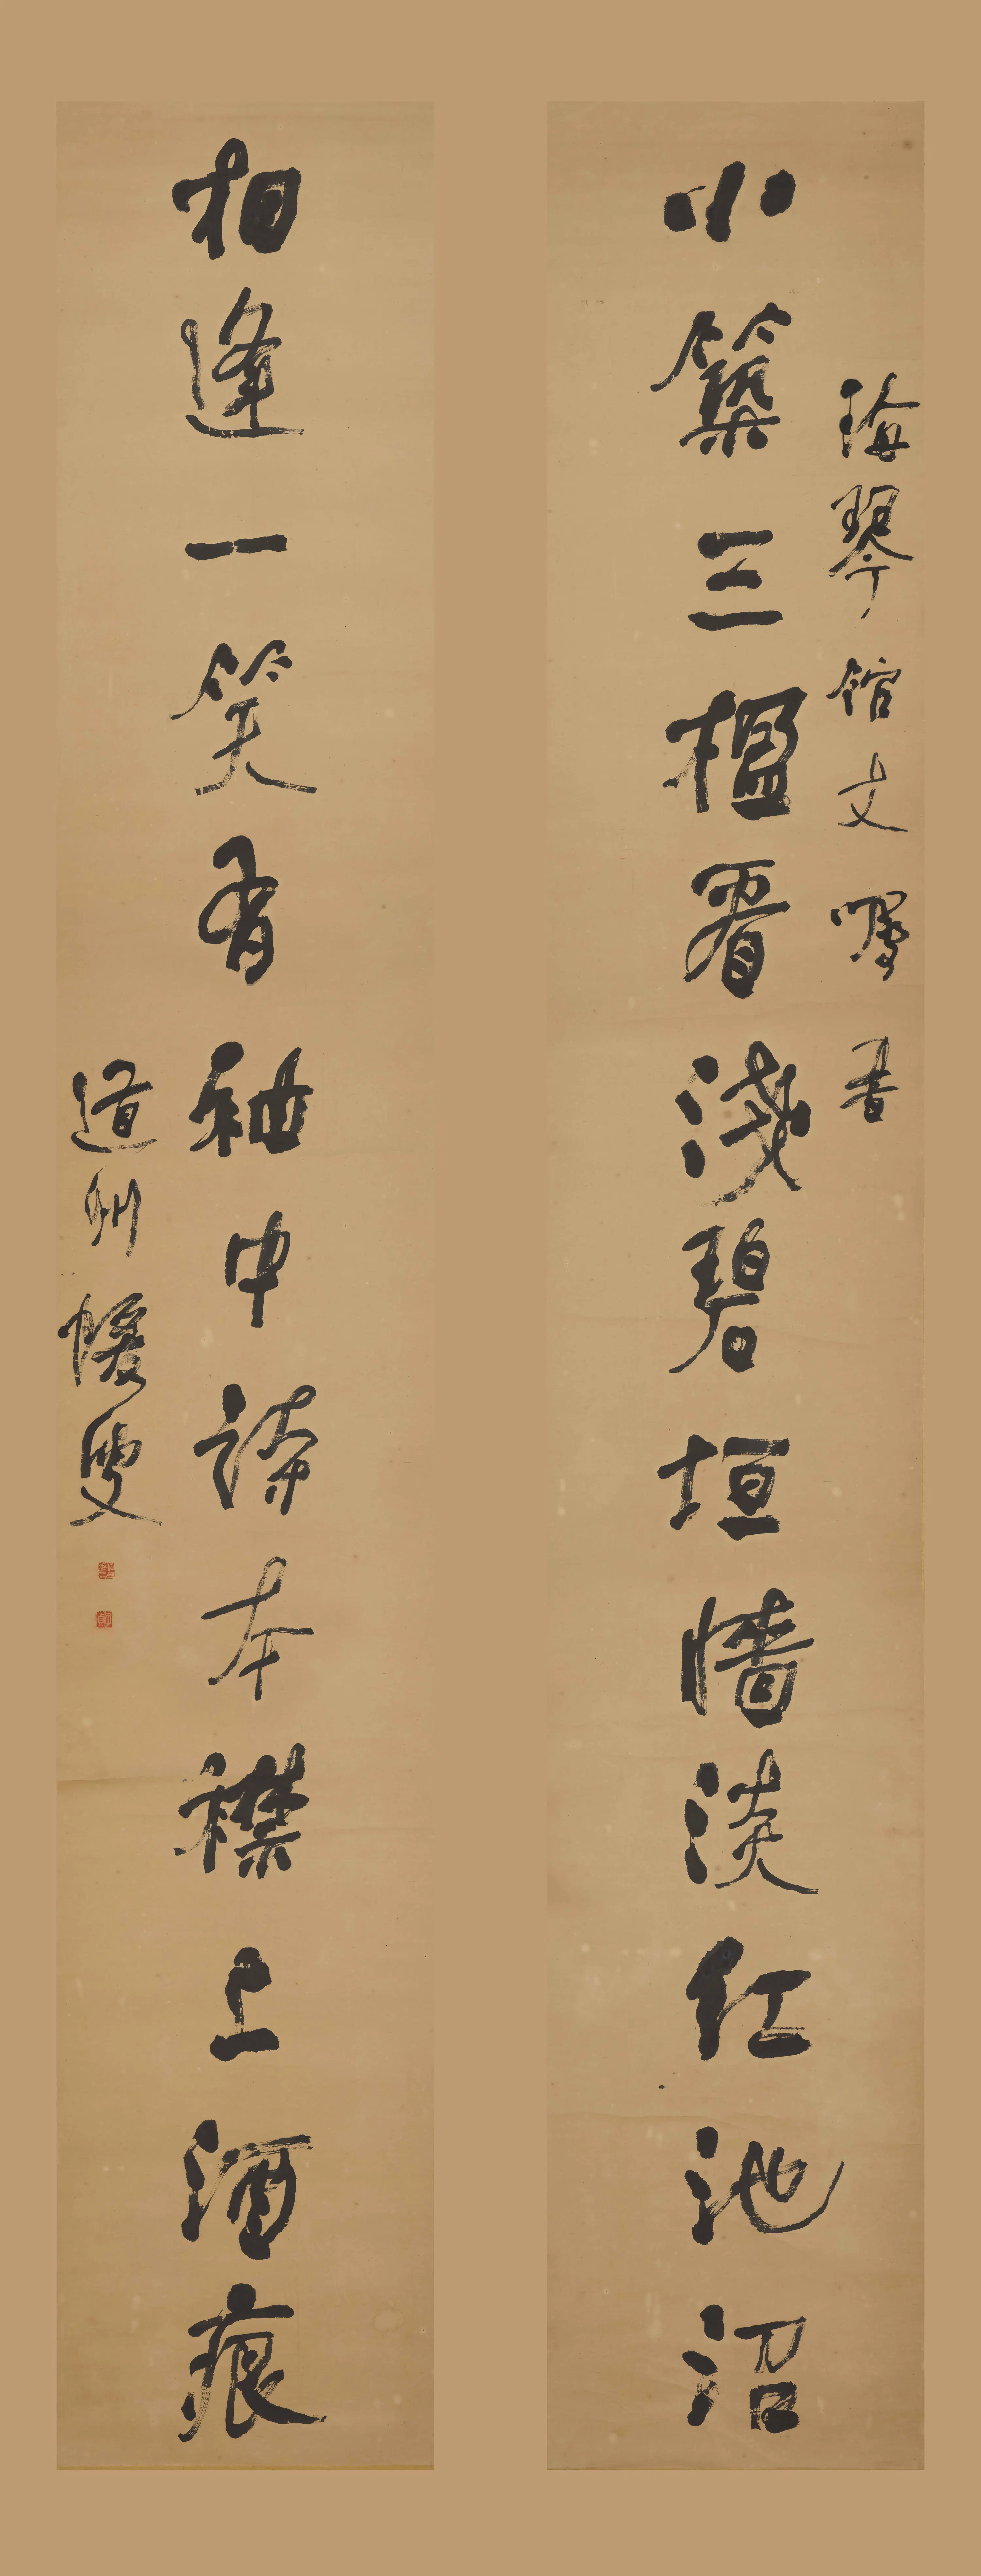 海琴馆丈嘱書
小築三楹看淺碧垣牆淡紅池沼
相逢一笑有袖中詩本襟上酒痕
道州蝯叟